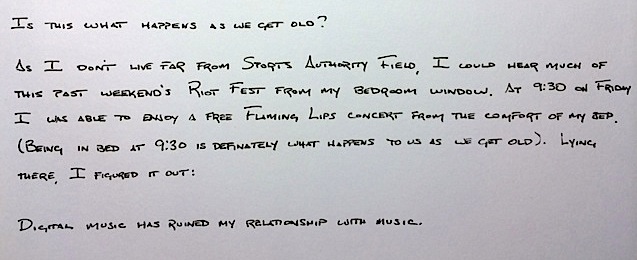 Is this what happens as we get old?
As I don't live far from Sports Authority Field, I could hear much of
this past weekend's Riot Fest from my bedroom window. At 9:30 on Friday
I was able to enjoy a free Flaming Lips concert from the comfort of my bed.
(Being in bed at 9:30 is definately what happens to us as we get old). Lying
there, I figured it out:
Digital music has ruined my relationship with music.